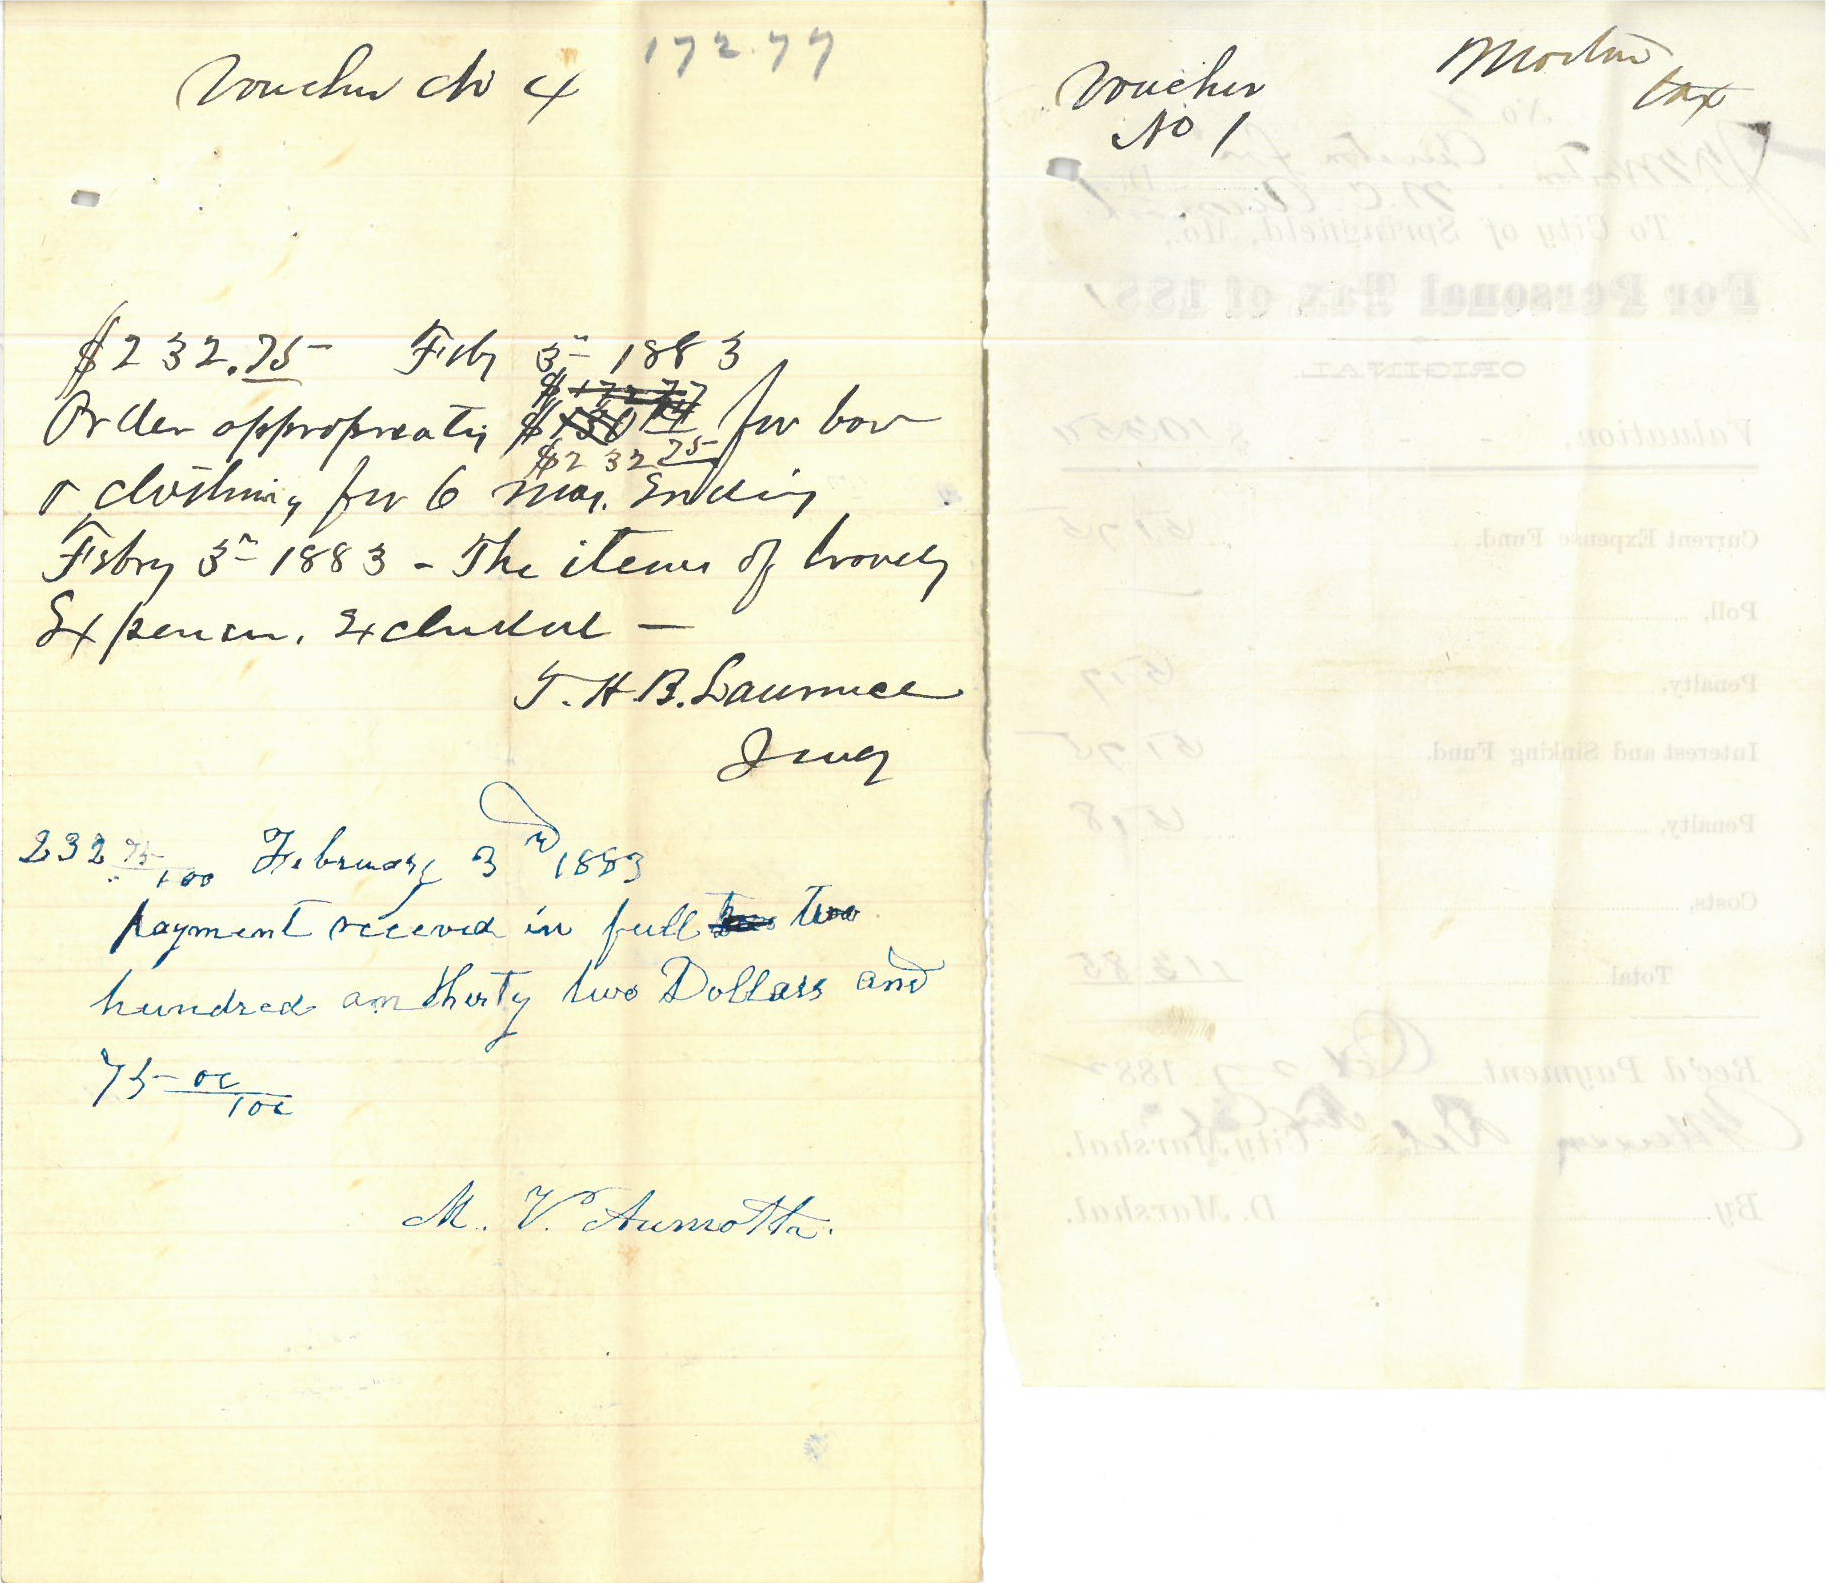 Voucher No 4
172.77
$232.75 Feby 3rd 1883
Order appropriatig
$172 77
$130 14
$232 75
for bor
& clothing for 6 mos. Ending
Febry 3rd 1883 - The items of travelg
Expenses. Excluded —
T. H. B. Lawrence
Judg
232 75/100 February 3rd 1883
payment receved in full two
hundred an thirty two Dollars and
75 oc/100
M. V.
Voucher
No 1
tax
No.
To City of Springfield, Mo.,
For Personal Tax of 1881
ORIGINAL.
Valuation, $
Current Expense Fund, 51 75
Poll,
Penalty, 5 17
Interest and Sinking Fund, 51 75
Penalty, 5 18
Costs,
Total 113 85
Rec'd Payment 1882
City Marshal.
By D. Marshal.